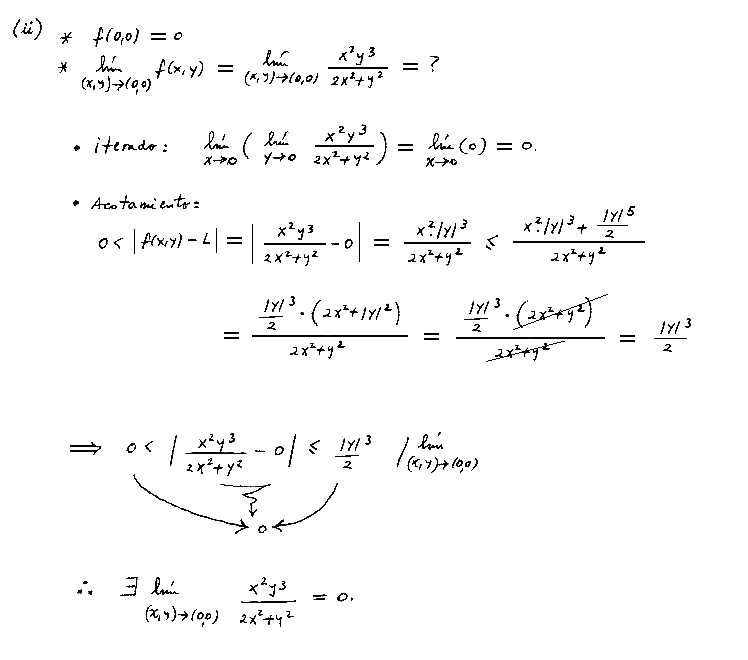 (ii) * f(0,0) = 0
* lím_{(x,y)→(0,0)} f(x,y) = lím_{(x,y)→(0,0)} x²y³/(2x²+y²) = ?
• iterado: lím_{x→0} ( lím_{y→0} x²y³/(2x²+y²) ) = lím_{x→0} (0) = 0.
• Acotamiento:
0 < | f(x,y) − L | = | x²y³/(2x²+y²) − 0 | = x²·|y|³/(2x²+y²) ≤ (x²·|y|³ + |y|⁵/2)/(2x²+y²)
= (|y|³/2 · (2x²+|y|²))/(2x²+y²) = (|y|³/2 · (2x²+y²))/(2x²+y²) = |y|³/2
⟹ 0 < | x²y³/(2x²+y²) − 0 | ≤ |y|³/2 / lím_{(x,y)→(0,0)}
0
∴ ∃ lím_{(x,y)→(0,0)} x²y³/(2x²+y²) = 0.